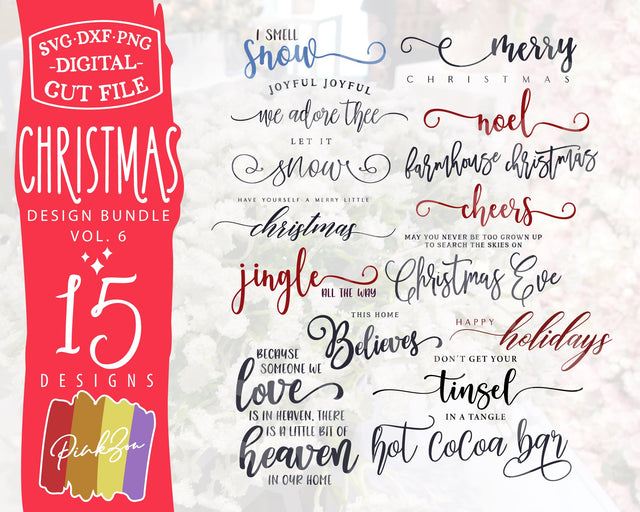 SVG·DXF·PNG
-DIGITAL-
CUT FILE
CHRISTMAS
DESIGN BUNDLE
VOL. 6
15
DESIGNS
PinkZou
I SMELL
snow
merry
CHRISTMAS
JOYFUL JOYFUL
we adore thee
noel
LET IT
snow
farmhouse christmas
HAVE YOURSELF A MERRY LITTLE
christmas
cheers
MAY YOU NEVER BE TOO GROWN UP
TO SEARCH THE SKIES ON
Christmas Eve
jingle
ALL THE WAY
THIS HOME
Believes
HAPPY
holidays
BECAUSE
SOMEONE WE
love
IS IN HEAVEN, THERE
IS A LITTLE BIT OF
heaven
IN OUR HOME
DON'T GET YOUR
tinsel
IN A TANGLE
hot cocoa bar